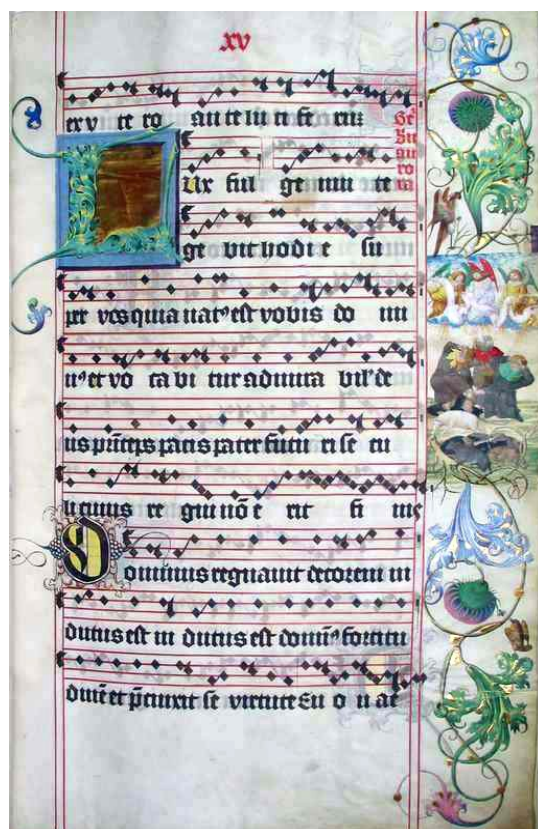 xv
ex v te ro an te lu ci fe rum
Ge
Bn
au
ro
ra
Lux ful ge mun te
ge bit hodi e su
per vos quia nat⁹ est vobis do mi
n⁹ et vo ca bi tur admira bil' de
us prīceps pacis pater futu ri se cu
li cuius re gni nō e rit fi nis
Dominus regnavit decorem in
dutus est in dutus est domin⁹ fortitu
dinē et p̄cinxit se virtute Eu o u ae